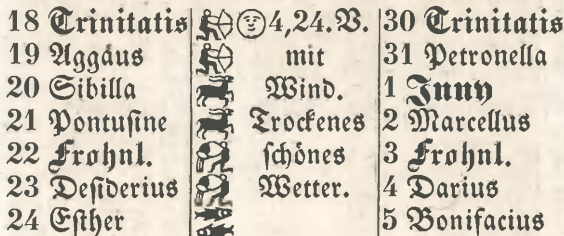 18 Trinitatis 4,24.V. 30 Trinitatis
19 Aggäus mit 31 Petronella
20 Sibilla Wind. 1 Juny
21 Pontusine Trockenes 2 Marcellus
22 Frohnl. schönes 3 Frohnl.
23 Desiderius Wetter. 4 Darius
24 Esther 5 Bonifacius